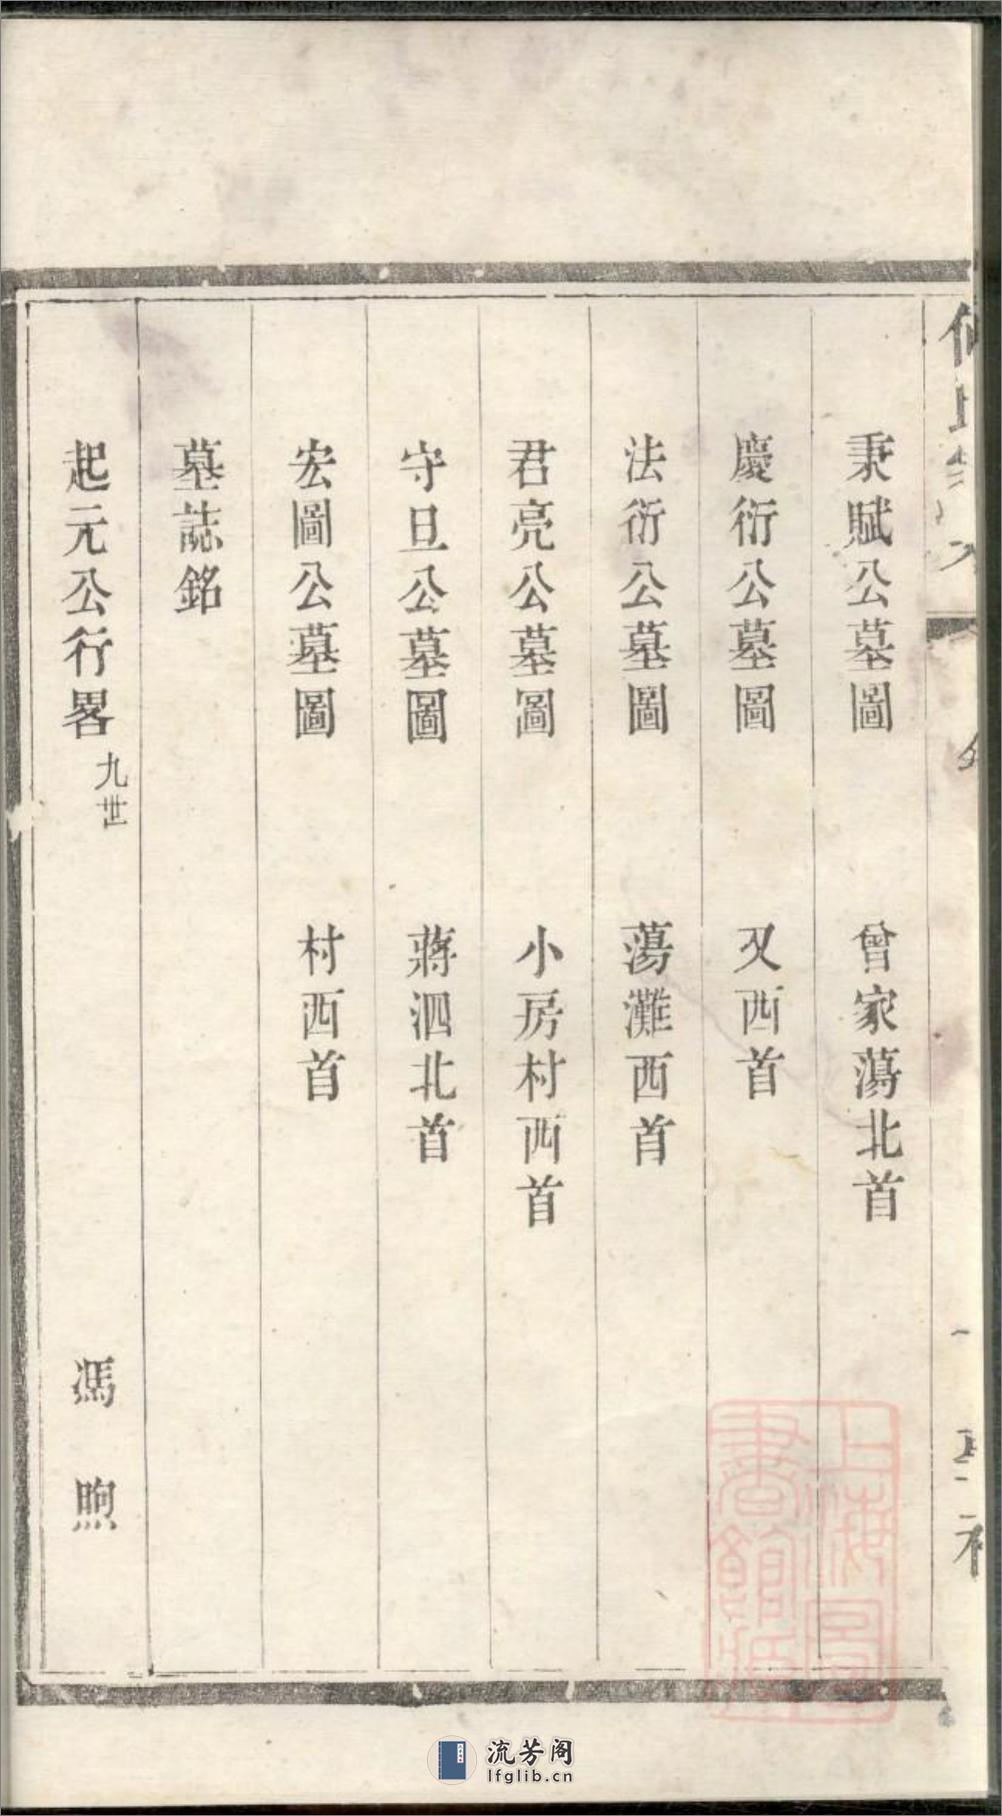 秉賦公墓圖 曾家蕩北首
慶衍公墓圖 又西首
法衍公墓圖 蕩灘西首
君亮公墓圖 小房村西首
守旦公墓圖 蔣泗北首
宏圖公墓圖 村西首
墓誌銘
起元公行畧 九世 馮煦
上海圖書館藏
流芳阁
lfglib.cn